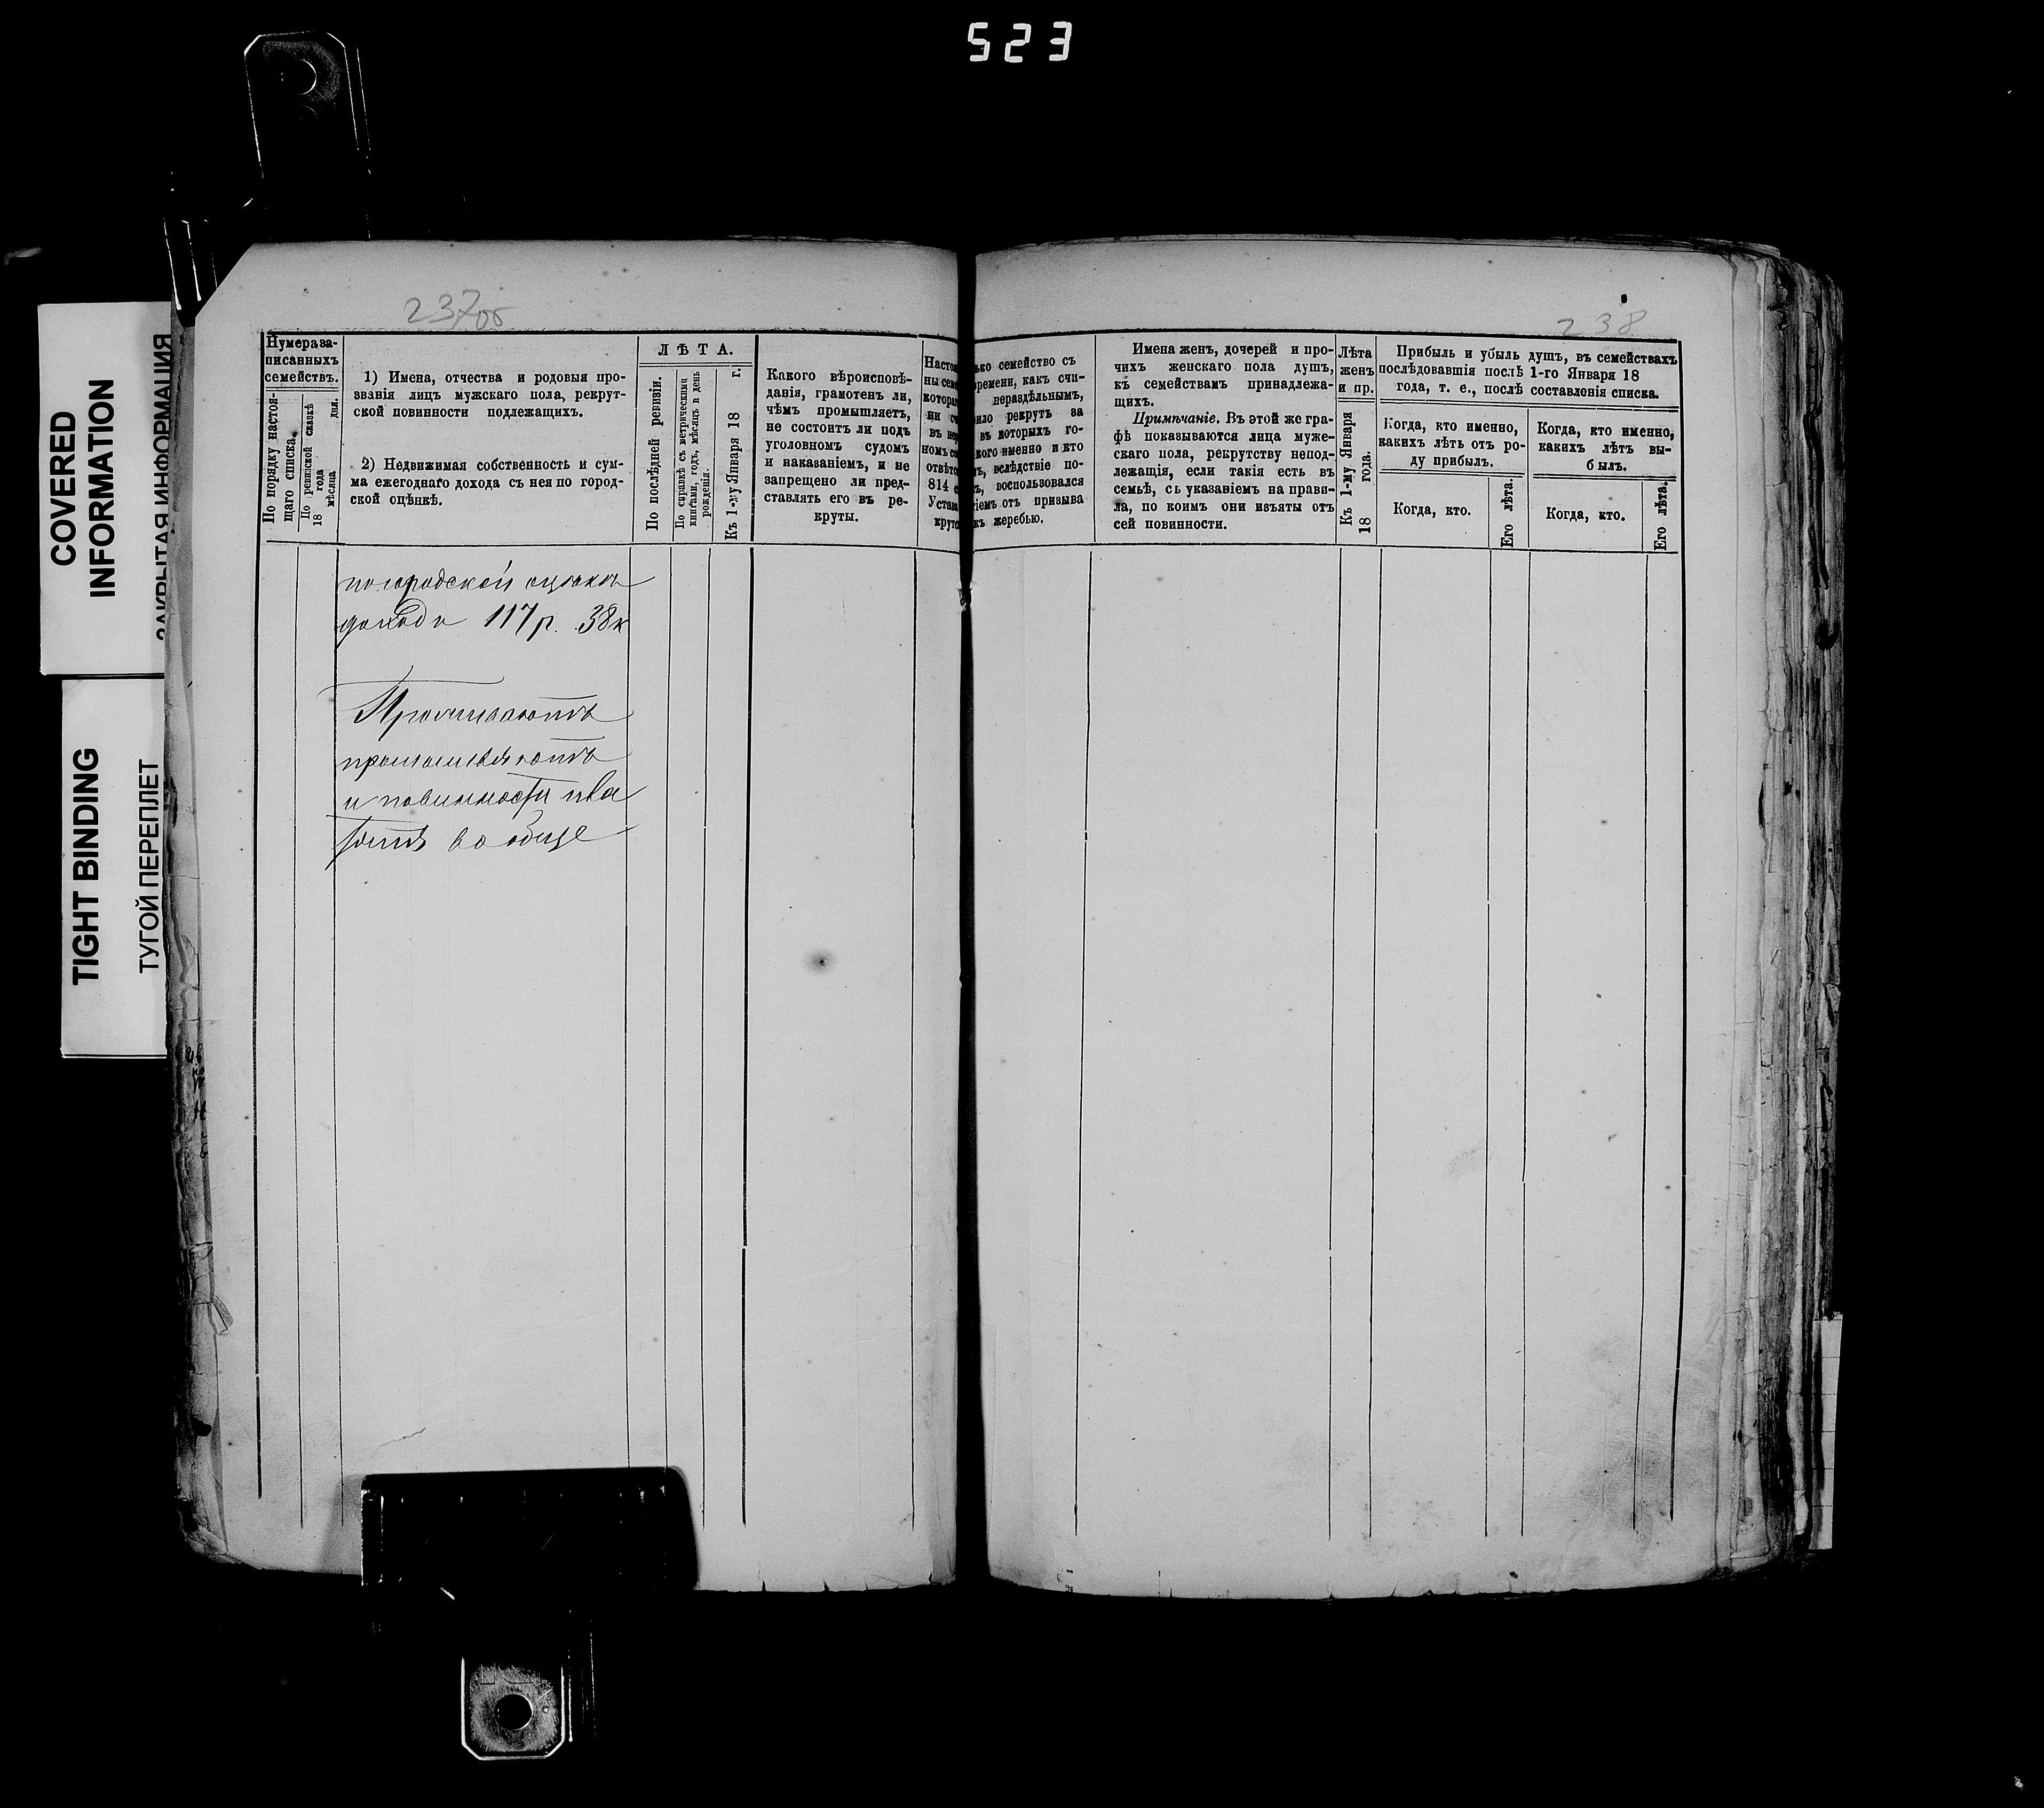 523
COVERED
INFORMATION
ЗАКРЫТАЯ ИНФОРМАЦИЯ
TIGHT BINDING
ТУГОЙ ПЕРЕПЛЕТ
237об
Нумера за-
писанныхъ
семействъ.
По порядку настоя-
щаго списка.
По ревизской сказкѣ
18 года
мѣсяца дня.
1) Имена, отчества и родовыя про-
званія лицъ мужскаго пола, рекрут-
ской повинности подлежащихъ.
2) Недвижимая собственность и сум-
ма ежегоднаго дохода съ нея по город-
ской оцѣнкѣ.
ЛѢТА.
По послѣдней ревизіи.
По справкѣ съ метрическими
книгами, годъ, мѣсяцъ и день
рожденія.
Къ 1-му Января 18 г.
Какого вѣроисповѣ-
данія, грамотенъ ли,
чѣмъ промышляетъ,
не состоитъ ли подъ
уголовномъ судомъ
и наказаніемъ, и не
запрещено ли пред-
ставлять его въ ре-
круты.
814
по городской оцѣнкѣ
дохода 117 р. 38 к
промышляютъ
и повинности пла
тятъ вообще
238
семейство съ
времени, какъ счи-
нераздѣльнымъ,
рекрутъ за
въ которыхъ го-
именно и кто
вслѣдствіе по-
воспользовался
отъ призыва
жеребью.
Имена женъ, дочерей и про-
чихъ женскаго пола душъ,
къ семействамъ принадлежа-
щихъ.
Примѣчаніе. Въ этой же гра-
фѣ показываются лица муже-
скаго пола, рекрутству непод-
лежащія, если такія есть въ
семьѣ, съ указаніемъ на прави-
ла, по коимъ они изъяты отъ
сей повинности.
Лѣта
женъ
и пр.
Къ 1-му Января
18 года.
Прибыль и убыль душъ, въ семействахъ
послѣдовавшія послѣ 1-го Января 18
года, т. е., послѣ составленія списка.
Когда, кто именно,
какихъ лѣтъ отъ ро-
ду прибылъ.
Когда, кто.
Его лѣта.
Когда, кто именно,
какихъ лѣтъ вы-
былъ.
Когда, кто.
Его лѣта.